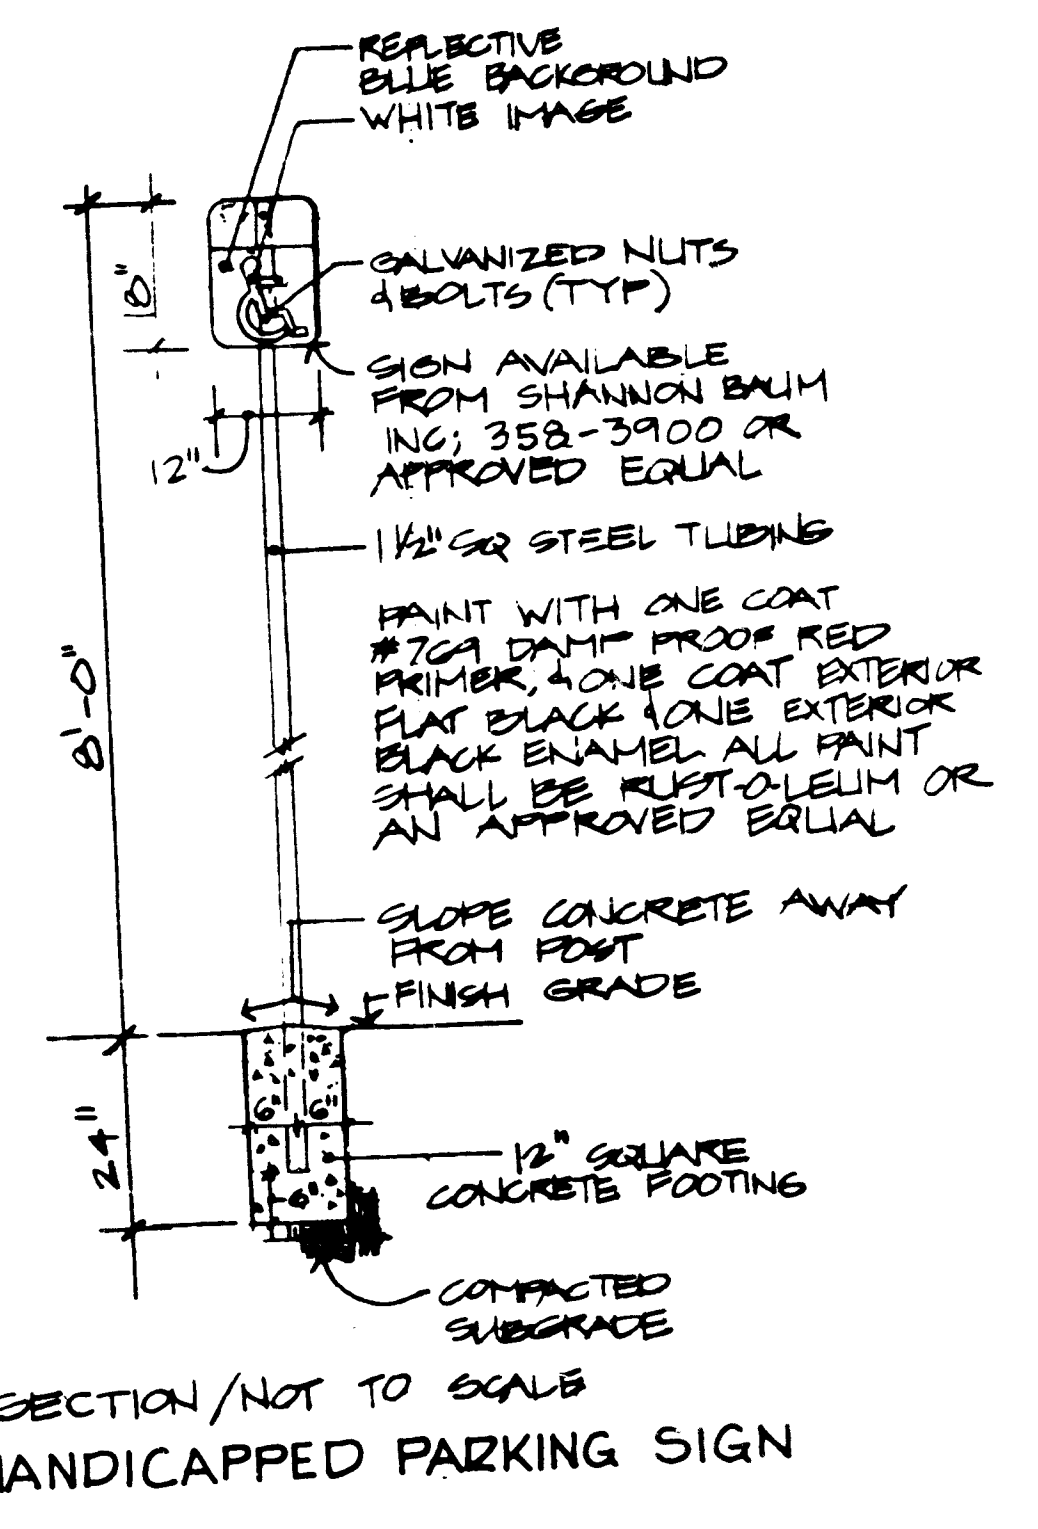 REFLECTIVE
BLUE BACKGROUND
WHITE IMAGE
GALVANIZED NUTS
& BOLTS (TYP)
18"
SIGN AVAILABLE
FROM SHANNON BAUM
INC; 358-3900 OR
APPROVED EQUAL
12"
1 1/2" SQ STEEL TUBING
PAINT WITH ONE COAT
#769 DAMP PROOF RED
PRIMER, & ONE COAT EXTERIOR
FLAT BLACK & ONE EXTERIOR
BLACK ENAMEL ALL PAINT
SHALL BE RUST-O-LEUM OR
AN APPROVED EQUAL
8'-0"
SLOPE CONCRETE AWAY
FROM POST
FINISH GRADE
6" 6"
24"
12" SQUARE
CONCRETE FOOTING
6"
COMPACTED
SUBGRADE
SECTION/NOT TO SCALE
HANDICAPPED PARKING SIGN